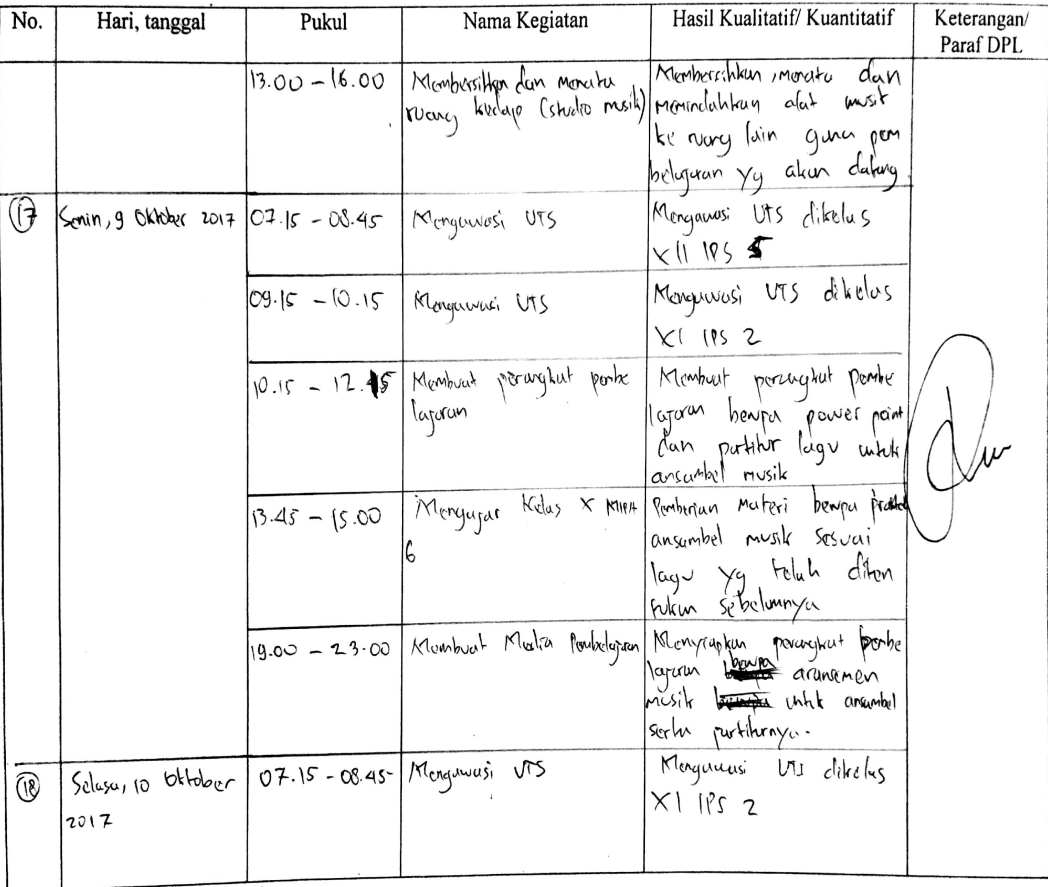 No. Hari, tanggal Pukul Nama Kegiatan Hasil Kualitatif/ Kuantitatif Keterangan/
Paraf DPL
13.00 - 16.00 Membersihkan dan menata Membersihkan, menata dan
ruang kedap (studio musik) memindahkan alat musik
ke ruang lain guna pem
belajaran yg akan datang.
17 Senin, 9 Oktober 2017 07.15 - 08.45 Mengawasi UTS Mengawasi UTS dikelas
XII IPS 5
09.15 - 10.15 Mengawasi UTS Mengawasi UTS dikelas
XI IPS 2
10.15 - 12.15 Membuat perangkat pembe Membuat perangkat pembe
lajaran lajaran berupa power point
dan partitur lagu untuk
ansambel musik
13.45 - 15.00 Mengajar Kelas X MIPA Pemberian Materi berupa praktek
6 ansambel musik sesuai
lagu yg telah diten
tukan sebelumnya
19.00 - 23.00 Membuat Media Pembelajaran Menyiapkan perangkat pembe
lajaran berupa aransemen
musik untuk ansambel
serta partiturnya.
18 Selasa, 10 Oktober 07.15 - 08.45 Mengawasi UTS Mengawasi UTS dikelas
2017 XI IPS 2